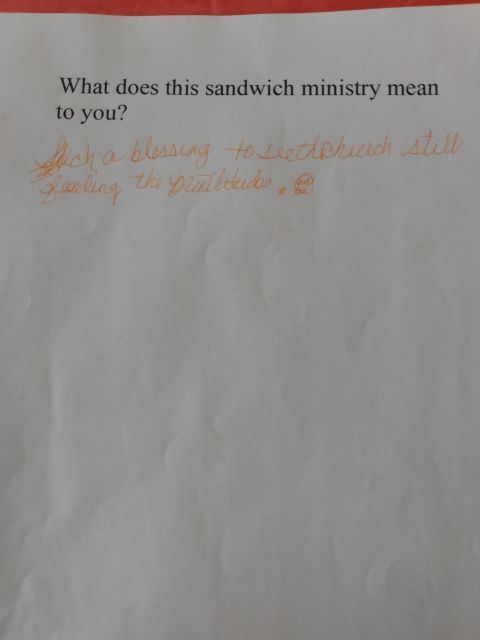 What does this sandwich ministry mean
to you?
Such a blessing to see the church still
feeding the multitudes.